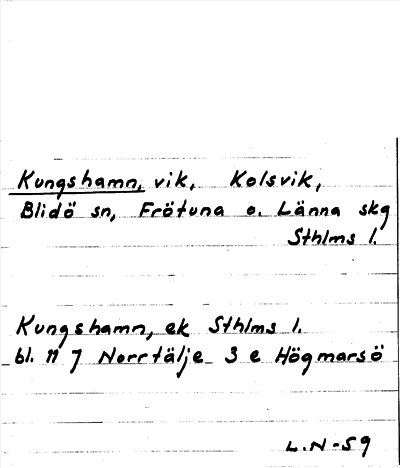 Kungshamn, vik, Kolsvik,
Blidö sn, Frötuna o. Länna skg
Sthlms l.
Kungshamn, ek Sthlms l.
bl. 11 7 Norrtälje 3 e Högmarsö
L.N-59